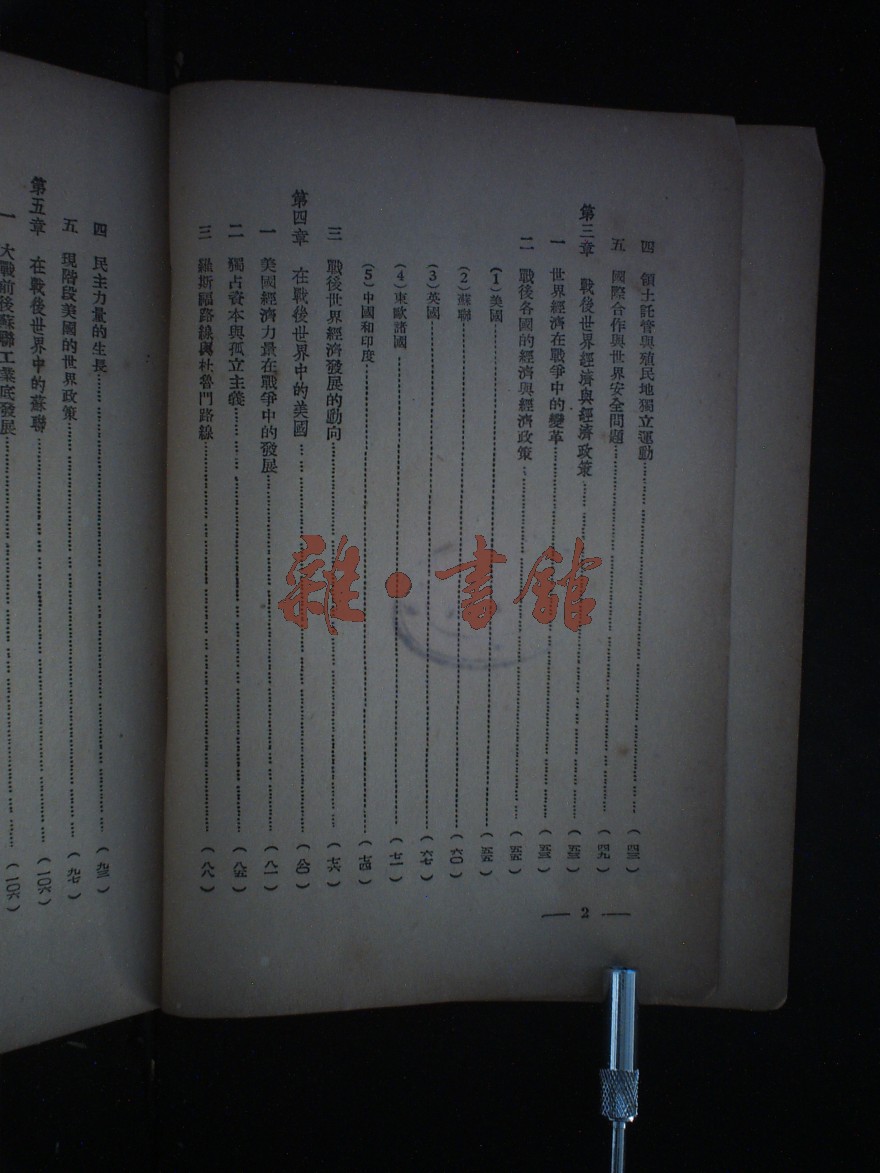 四　領土託管與殖民地獨立運動……（四三）
五　國際合作與世界安全問題……（四九）
第三章　戰後世界經濟與經濟政策……（五三）
一　世界經濟在戰爭中的變革……（五三）
二　戰後各國的經濟與經濟政策……（五五）
(1)美國……（五五）
(2)蘇聯……（六〇）
(3)英國……（六七）
(4)東歐諸國……（七一）
(5)中國和印度……（七四）
三　戰後世界經濟發展的動向……（七六）
第四章　在戰後世界中的美國……（八〇）
一　美國經濟力量在戰爭中的發展……（八一）
二　獨占資本與孤立主義……（八五）
三　羅斯福路線與杜魯門路線……（八八）
— 2 —
四　民主力量的生長……（九三）
五　現階段美國的世界政策……（九七）
第五章　在戰後世界中的蘇聯……（一〇六）
一　大戰前後蘇聯工業底發展……（一〇六）
雜·書館